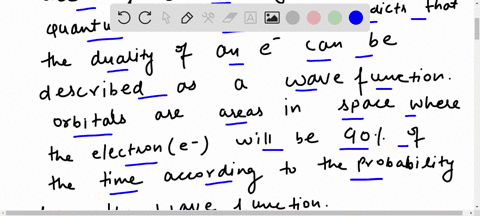 quantu dicts that
the duality of an e⁻ can be
described as a wave function.
orbitals are areas in space where
the electron (e-) will be 90% of
the time according to the probability
wave function.